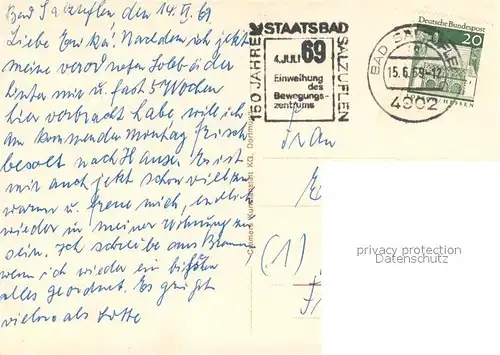 Bad Salzuflen den 14. VI. 69
Liebe Erika! Nachdem ich jetzt
meine verordneten Solebäder
hinter mir u. fast 5 Wochen
hier verbracht habe, will ich
am kommenden Montag frisch
besolt nach Hause. Es ist
mir auch jetzt schon viel zu
warm u. freue mich, endlich
wieder in meiner Wohnung zu
sein. Ich schreibe aus Bremen
wenn ich wieder ein bißchen
alles geordnet. Es grüßt
vielmals Lotte
150 JAHRE STAATSBAD
SALZUFLEN
4. JULI 69
Einweihung
des
Bewegungs-
zentrums
BAD SALZUFLEN
15.6.69-12
4902
Deutsche Bundespost
20
HESSEN
Cramers Kunstanstalt KG, Dortmund
Frau
(1)
privacy protection
Datenschutz